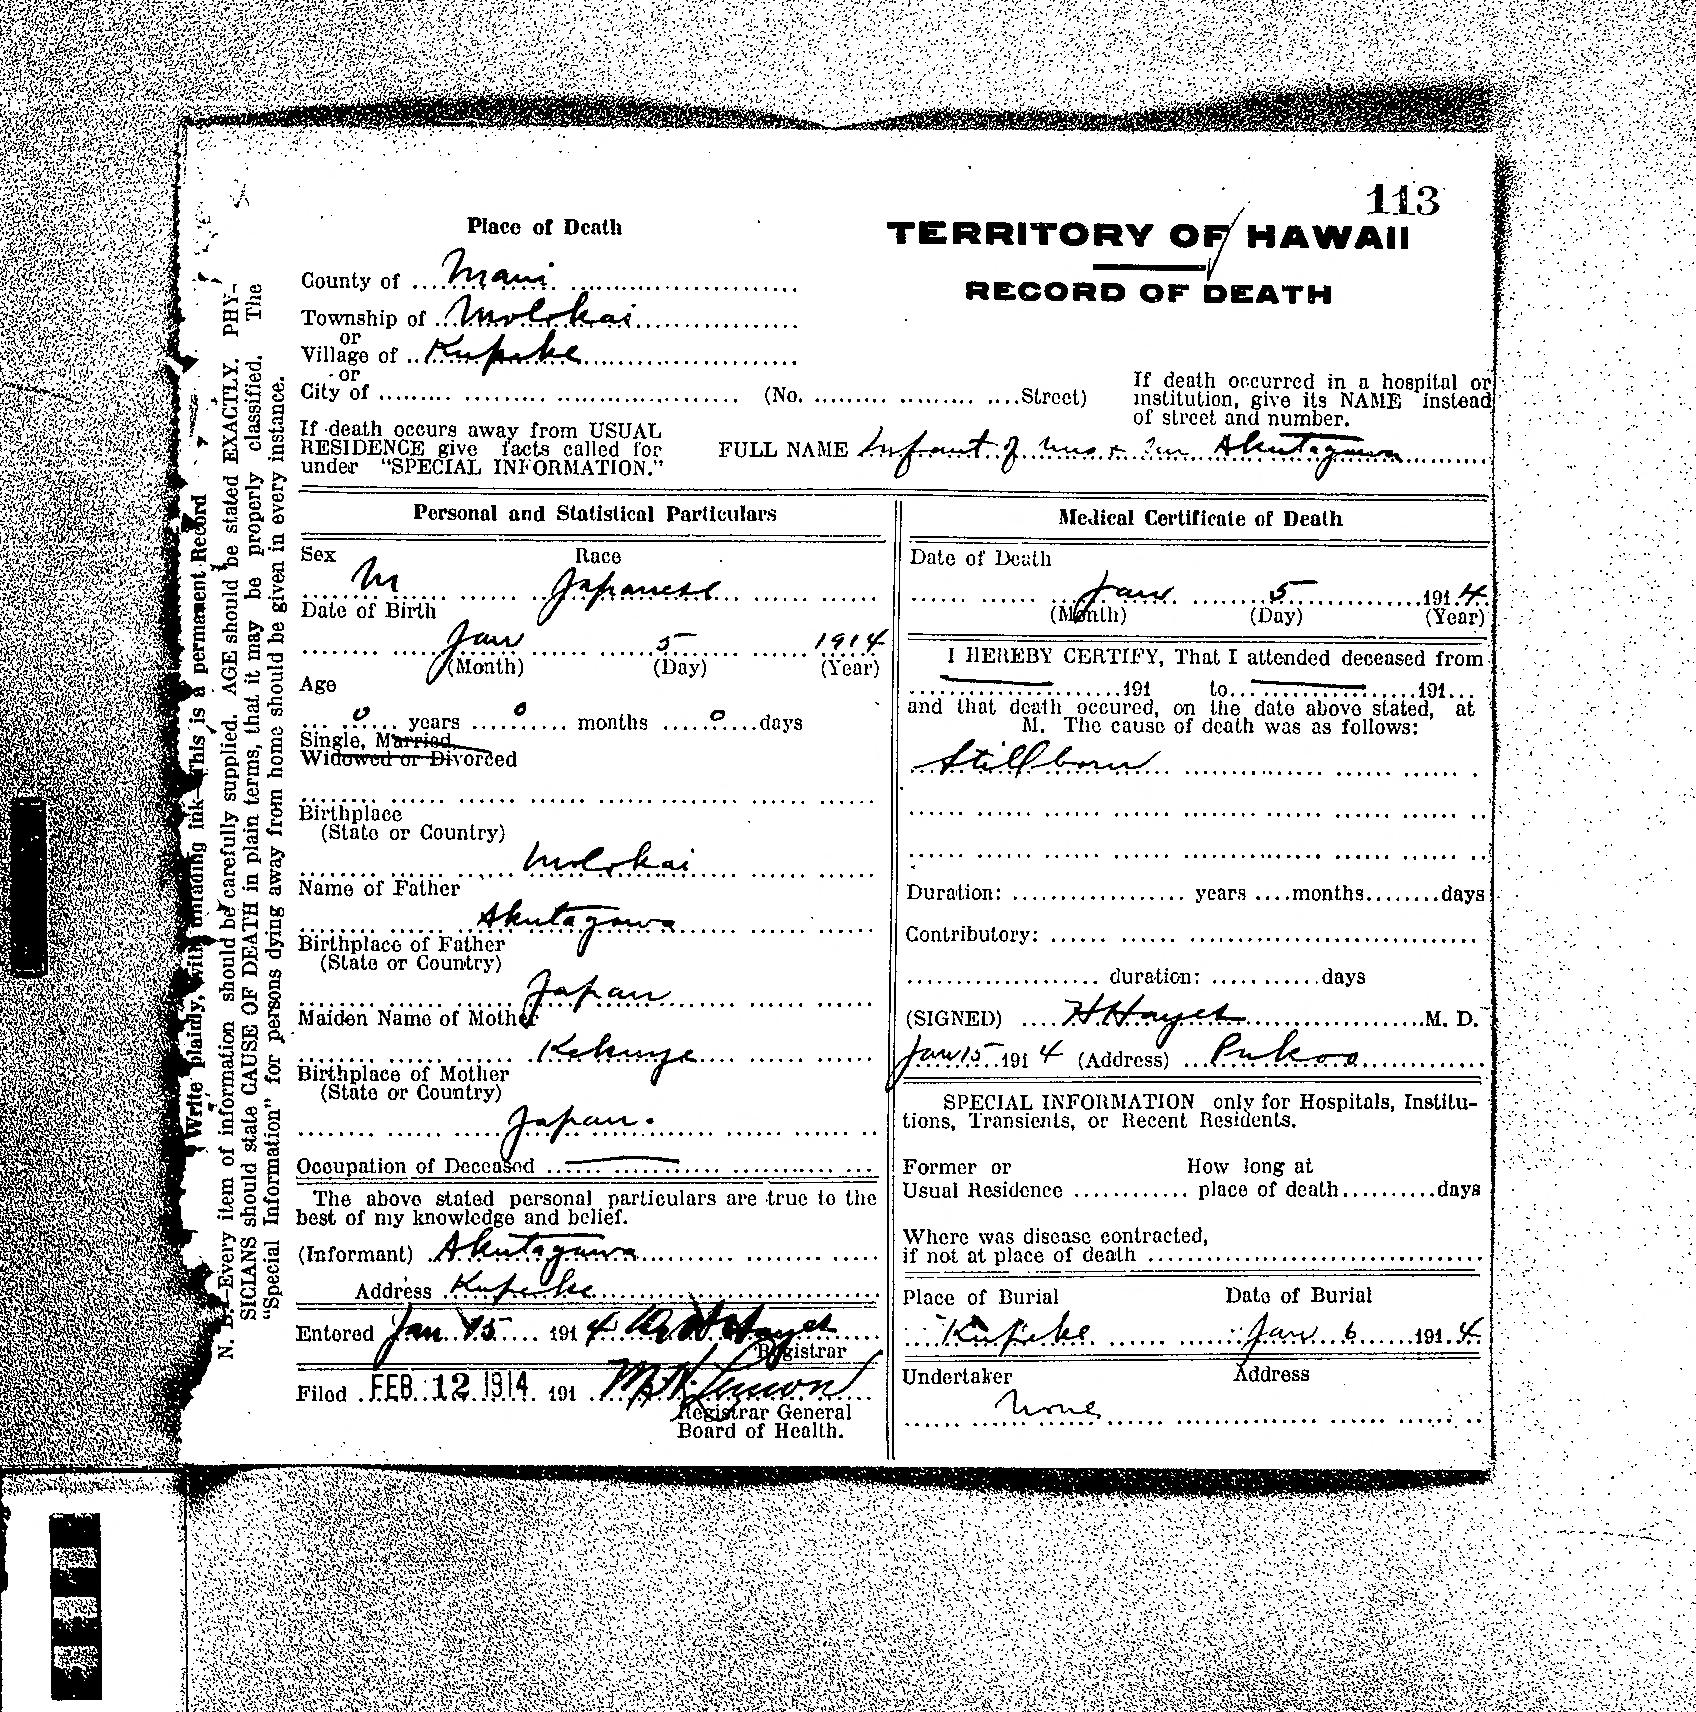 113
TERRITORY OF HAWAII
RECORD OF DEATH
Place of Death
County of Maui
Township of Molokai
or
Village of Kupeke
or
City of (No. Street)
If death occurred in a hospital or
institution, give its NAME instead
of street and number.
If death occurs away from USUAL
RESIDENCE give facts called for
under "SPECIAL INFORMATION."
FULL NAME Infant of Mrs + Mr Akutagawa
Write plainly, with unfading ink—This is a permanent Record
N. B.—Every item of information should be carefully supplied. AGE should be stated EXACTLY. PHY-
SICIANS should state CAUSE OF DEATH in plain terms, that it may be properly classified. The
"Special Information" for persons dying away from home should be given in every instance.
Personal and Statistical Particulars
Sex Race
M Japanese
Date of Birth
Jan 5 1914
(Month) (Day) (Year)
Age
0 years 0 months 0 days
Single, Married,
Widowed or Divorced
Birthplace
(State or Country)
Molokai
Name of Father
Akutagawa
Birthplace of Father
(State or Country)
Japan
Maiden Name of Mother
Birthplace of Mother
(State or Country)
Japan.
Occupation of Deceased
The above stated personal particulars are true to the
best of my knowledge and belief.
(Informant) Akutagawa
Address Kupeke
Entered Jan 15 1914 Dr H Hayes
Registrar
Filed FEB 12 1914 191
Registrar General
Board of Health.
Medical Certificate of Death
Date of Death
Jan 5 1914
(Month) (Day) (Year)
I HEREBY CERTIFY, That I attended deceased from
191 to 191
and that death occured, on the date above stated, at
M. The cause of death was as follows:
Stillborn
Duration: years months days
Contributory:
duration: days
(SIGNED) H Hayes M. D.
Jan 15 1914 (Address) Pukoo
SPECIAL INFORMATION only for Hospitals, Institu-
tions, Transients, or Recent Residents.
Former or How long at
Usual Residence place of death days
Where was disease contracted,
if not at place of death
Place of Burial Date of Burial
Kupeke Jan 6 1914
Undertaker Address
None